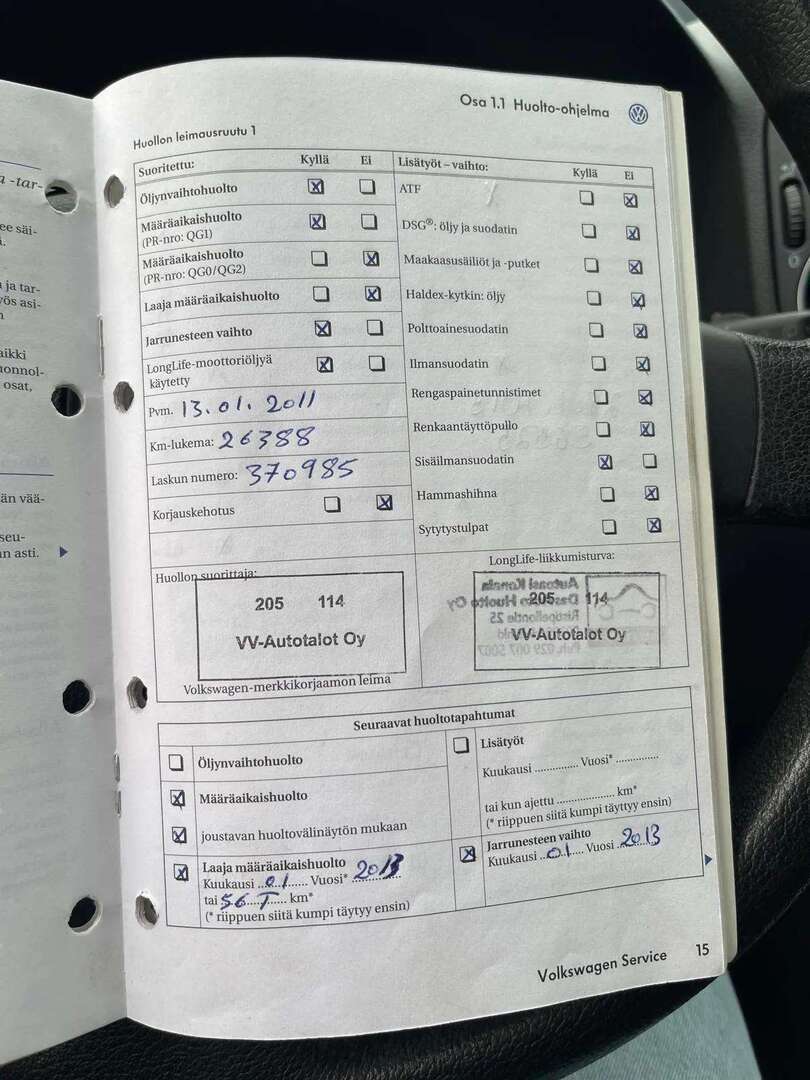 a -tar-
ee säi-
i.
ja tar-
yös asi-
n
aikki
uonnol-
osat,
än vää-
seu-
n asti.
Osa 1.1 Huolto-ohjelma
Huollon leimausruutu 1
Suoritettu: Kyllä Ei
Öljynvaihtohuolto ☒ ☐
Määräaikaishuolto ☒ ☐
(PR-nro: QG1)
Määräaikaishuolto ☐ ☒
(PR-nro: QG0/QG2)
Laaja määräaikaishuolto ☐ ☒
Jarrunesteen vaihto ☒ ☐
LongLife-moottoriöljyä ☒ ☐
käytetty
Pvm. 13.01.2011
Km-lukema: 26388
Laskun numero: 370985
Korjauskehotus ☐ ☒
Lisätyöt – vaihto: Kyllä Ei
ATF ☐ ☒
DSG®: öljy ja suodatin ☐ ☒
Maakaasusäiliöt ja -putket ☐ ☒
Haldex-kytkin: öljy ☐ ☒
Polttoainesuodatin ☐ ☒
Ilmansuodatin ☐ ☒
Rengaspainetunnistimet ☐ ☒
Renkaantäyttöpullo ☐ ☒
Sisäilmansuodatin ☒ ☐
Hammashihna ☐ ☒
Sytytystulpat ☐ ☒
Huollon suorittaja:
205 114
VV-Autotalot Oy
Volkswagen-merkkikorjaamon leima
LongLife-liikkumisturva:
205 114
VV-Autotalot Oy
Seuraavat huoltotapahtumat
☐ Öljynvaihtohuolto
☒ Määräaikaishuolto
☒ joustavan huoltovälinäytön mukaan
☒ Laaja määräaikaishuolto
Kuukausi ..01...... Vuosi* 2013
tai 56 T km*
(* riippuen siitä kumpi täytyy ensin)
☐ Lisätyöt
Kuukausi .............. Vuosi* ..............
tai kun ajettu .................... km*
(* riippuen siitä kumpi täytyy ensin)
☒ Jarrunesteen vaihto
Kuukausi ..01.... Vuosi 2013
Volkswagen Service 15